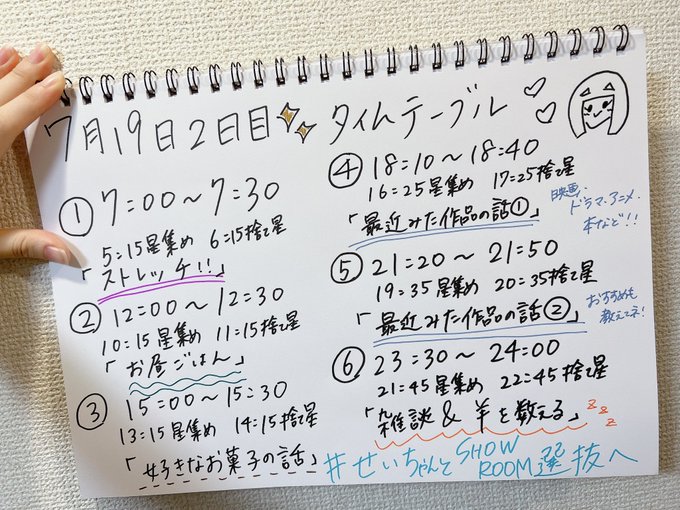 7月19日2日目 タイムテーブル
① 7:00〜7:30
5:15星集め 6:15捨て星
「ストレッチ!!」
② 12:00〜12:30
10:15星集め 11:15捨て星
「お昼ごはん」
③ 15:00〜15:30
13:15星集め 14:15捨て星
「好きなお菓子の話」
④ 18:10〜18:40
16:25星集め 17:25捨て星
「最近みた作品の話①」
映画・
ドラマ・アニメ・
本など!!
⑤ 21:20〜21:50
19:35星集め 20:35捨て星
「最近みた作品の話②」
おすすめも
教えてネ!
⑥ 23:30〜24:00
21:45星集め 22:45捨て星
「雑談&羊を数える」
z z z
#せいちゃんとSHOWROOM選抜へ